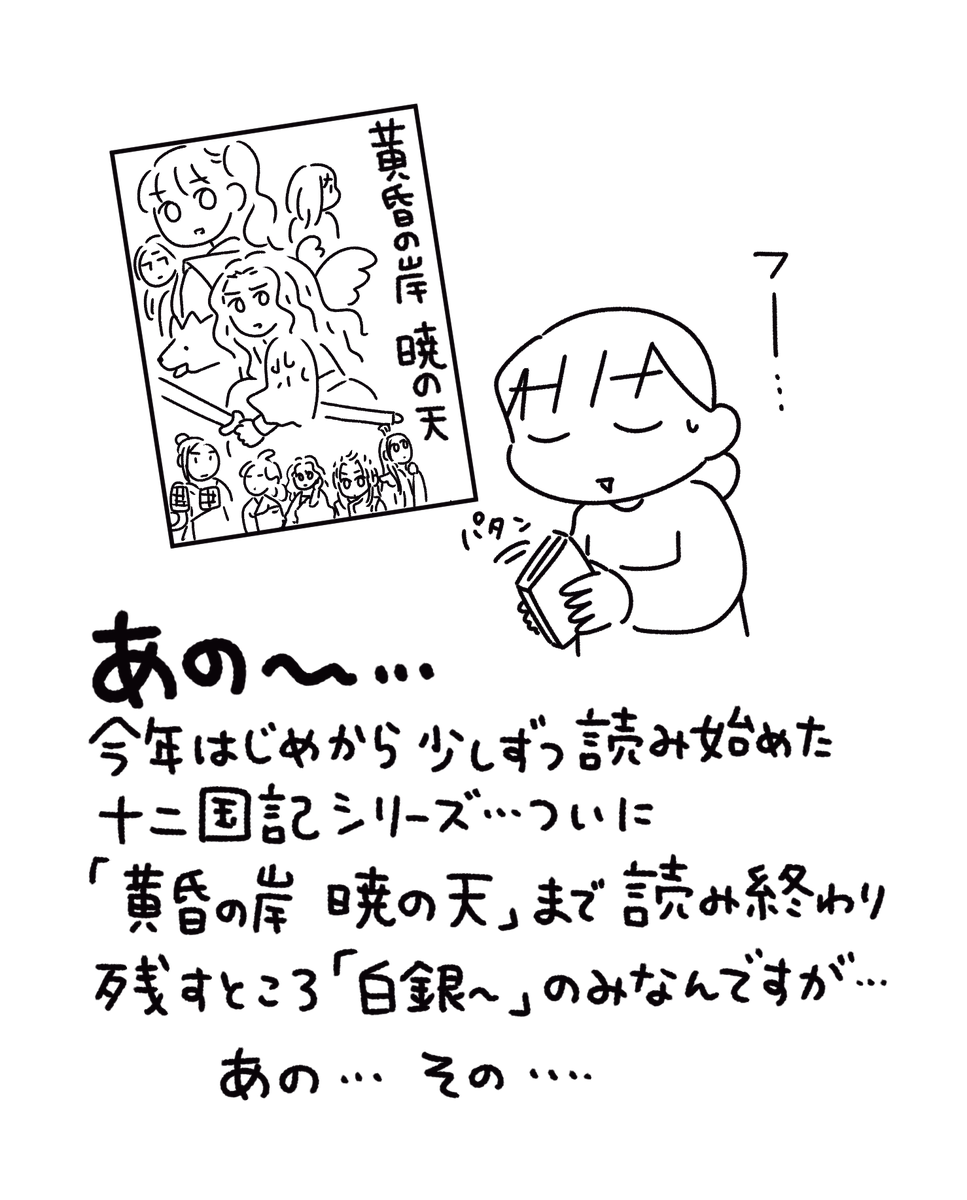 黄昏の岸 暁の天
フー…
パタン
あの〜…
今年はじめから少しずつ読み始めた
十二国記シリーズ…ついに
「黄昏の岸 暁の天」まで読み終わり
残すところ「白銀〜」のみなんですが…
あの… その….